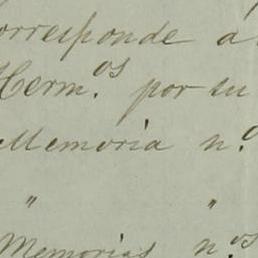 corresponde á
Herm.os por su
Memoria n.o
" "
Memorias n.os